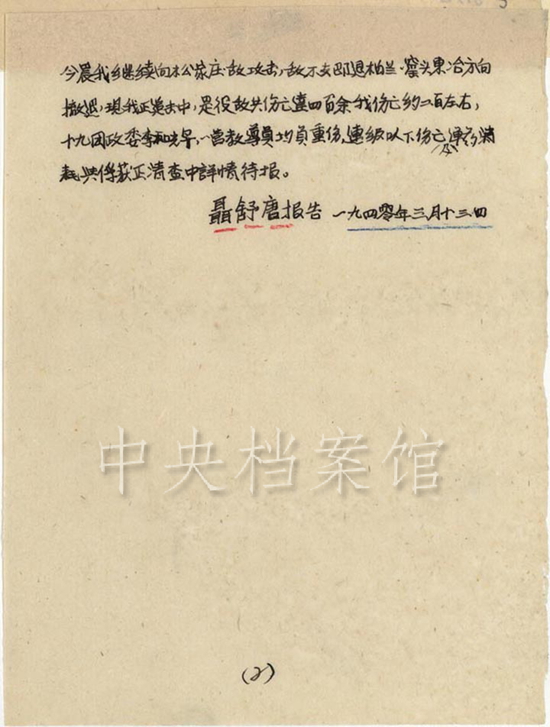 今晨我继续向松家庄敌攻击，敌不支即退柏兰、窑头东冶方向
撤退，现我正追击中，是役敌共伤亡达四百余我伤亡约二百左右，
十九团政委李和光早，一营教导员均负重伤，连级以下伤亡及弹药消
耗与俘获正清查中详情待报。
聂舒唐报告 一九四零年三月十三日
中央档案馆
(2)